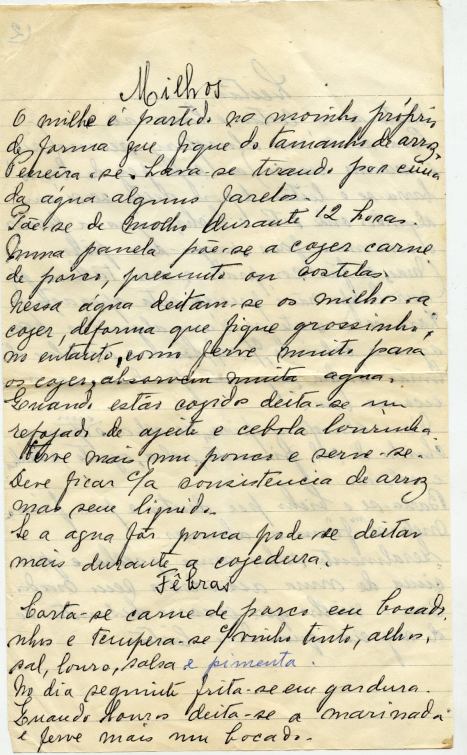 Milhos
O milho é partido no moinho próprio
de forma que fique do tamanho de arroz.
Peneira-se. Lava-se tirando por cima
da água alguns farelos.
Põe-se de molho durante 12 horas.
Numa panela põe-se a cozer carne
de porco, presunto ou costelas.
Nessa água deitam-se os milhos a
cozer, de forma que fique grossinho;
no entanto, como ferve muito para
os cozer, absorvem muita agua.
Quando estão cozidos deita-se um
refogado de azeite e cebola lourinha.
Ferve mais um pouco e serve-se.
Deve ficar c/a consistencia de arroz
mas sem liquido.
Se a agua fôr pouca pode-se deitar
mais durante a cozedura.
Fêbras
Corta-se carne de porco em bocadi
nhos e tempera-se c/ vinho tinto, alhos,
sal, louro, salsa e pimenta.
No dia seguinte frita-se em gordura.
Quando louros deita-se a marinada
e ferve mais um bocado.